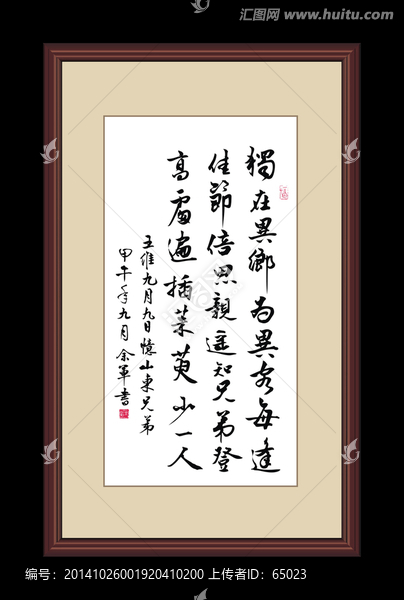 汇图网 www.huitu.com
獨在異鄉為異客每逢
佳節倍思親遥知兄弟登
高處遍插茱萸少一人
王維九月九日憶山東兄弟
甲午年九月余軍書
编号：20141026001920410200 上传者ID：65023